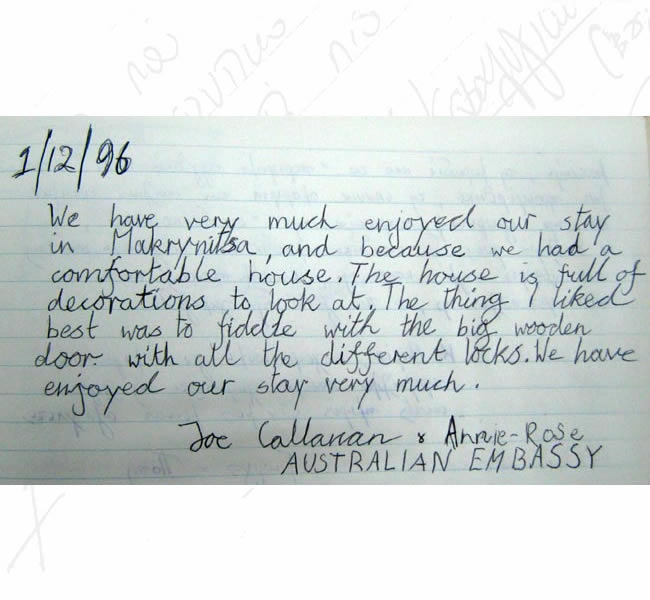 1/12/96
We have very much enjoyed our stay
in Makrynitsa, and because we had a
comfortable house. The house is full of
decorations to look at. The thing I liked
best was to fiddle with the big wooden
door with all the different locks. We have
enjoyed our stay very much.
Joe Callanan & Annie-Rose
AUSTRALIAN EMBASSY